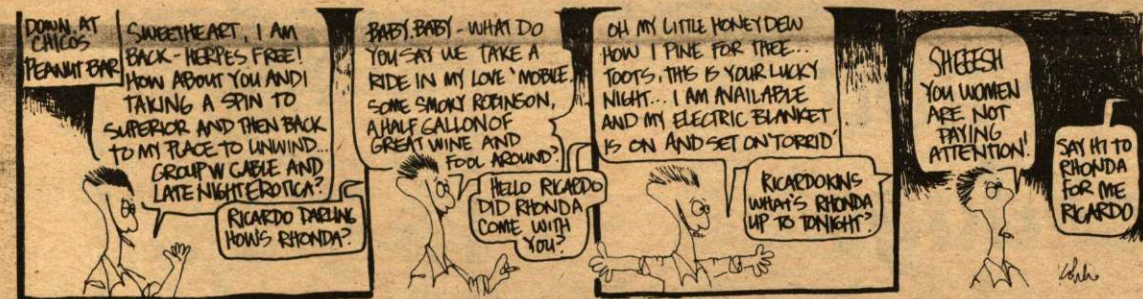 DOWN AT
CHICO'S
PEANUT BAR
SWEETHEART, I AM
BACK - HERPES FREE!
HOW ABOUT YOU AND I
TAKING A SPIN TO
SUPERIOR AND THEN BACK
TO MY PLACE TO UNWIND...
GROUP W CABLE AND
LATE NIGHT EROTICA?
RICARDO DARLING
HOW'S RHONDA?
BABY, BABY - WHAT DO
YOU SAY WE TAKE A
RIDE IN MY LOVE 'MOBILE.
SOME SMOKY ROBINSON,
A HALF GALLON OF
GREAT WINE AND
FOOL AROUND?
HELLO RICARDO
DID RHONDA
COME WITH
YOU?
OH MY LITTLE HONEYDEW
HOW I PINE FOR THEE...
TOOTS, THIS IS YOUR LUCKY
NIGHT... I AM AVAILABLE
AND MY ELECTRIC BLANKET
IS ON AND SET ON 'TORRID'
RICARDOKINS
WHAT'S RHONDA
UP TO TONIGHT?
SHEEESH
YOU WOMEN
ARE NOT
PAYING
ATTENTION!
SAY HI TO
RHONDA
FOR ME
RICARDO